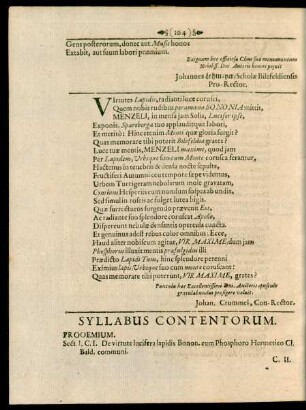 (104)
Gens posterorum, donec aut Musis honos
Extabit, aut suum labori præmium.
Exiguum hoc officiosa
Nobiliss. Dni. Autoris honori posuit
Johannes Scholæ Bilefeldiensis
Pro-Rector.
VIrtutes Lapidis, radianti luce corusci,
Quem nobis rudibus peramœna BONONIA mittit,
MENZELI, in mensa jam Solis, Lucifer ipse,
Exponis. Sparrberga tuo applauditque labori,
Et meritò: Hinc etenim Monti quæ gloria surgit?
Quas memorare tibi poterit Bilefeldia grates?
Luce tuæ mentis, MENZELI maxime, quod jam
Per Lapidem, Urbeque suo cum Monte corusca ferantur,
Hactenus in tenebris & densâ nocte sepulta,
Fructiferi Autumni ceu tempore sæpe videmus,
Urbem Turrigeram nebularum mole gravatam,
Contiguum Hesperiis cum nondum salpura ab undis,
Sed simulin roseis ac fulget lutea bigis.
Quæ surrectantes surgendo prævenit Eos,
Ac radiante suo splendore coruscat Apollo,
Dispereunt nebulæ densitas opercula cuncta
Et genuinus adest rebus color omnibus: Ecce,
Haud aliter nobiscum agitur, VIR MAXIME, dum jam
Phosphorus illuxit mentis præfulgidus illi
Prædicto Lapidi Tuus, hinc splendore perenni
Eximius lapis Urbsque suo cum monte coruscant:
Quas memorare tibi poterunt, VIR MAXIME, grates?
Paucula hæc Excellentissimi Dni. Autoris opusculo
gratulabundus præfigere voluit
Johan. Crummel, Con-Rector.
SYLLABUS CONTENTORUM.
PROOEMIUM.
Sect. I. C. I. De virtute lucifera lapidis Bonon. cum Phosphoro Hermetico Cl.
Bald. communi.
C. II.